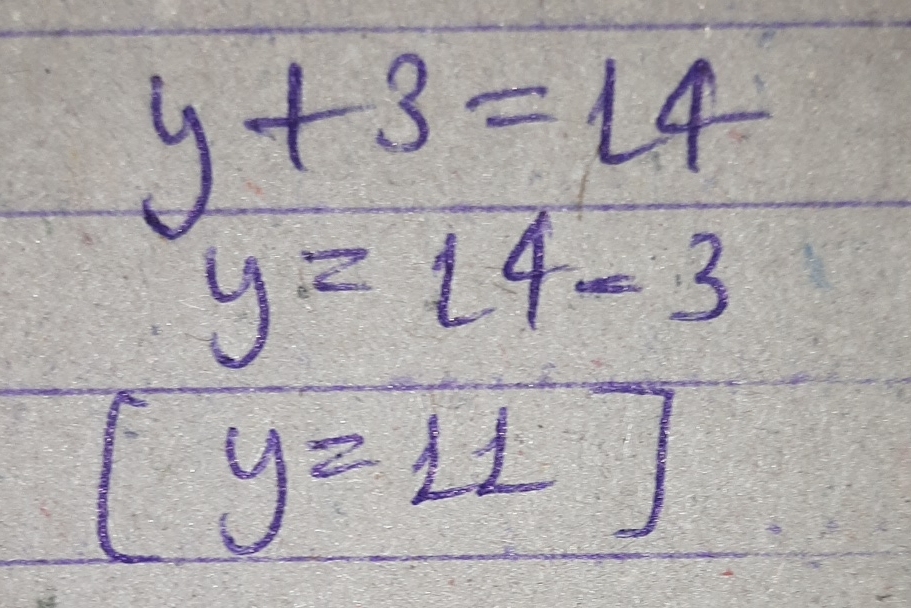 y + 3 = 14
y = 14 - 3
[ y = 11 ]